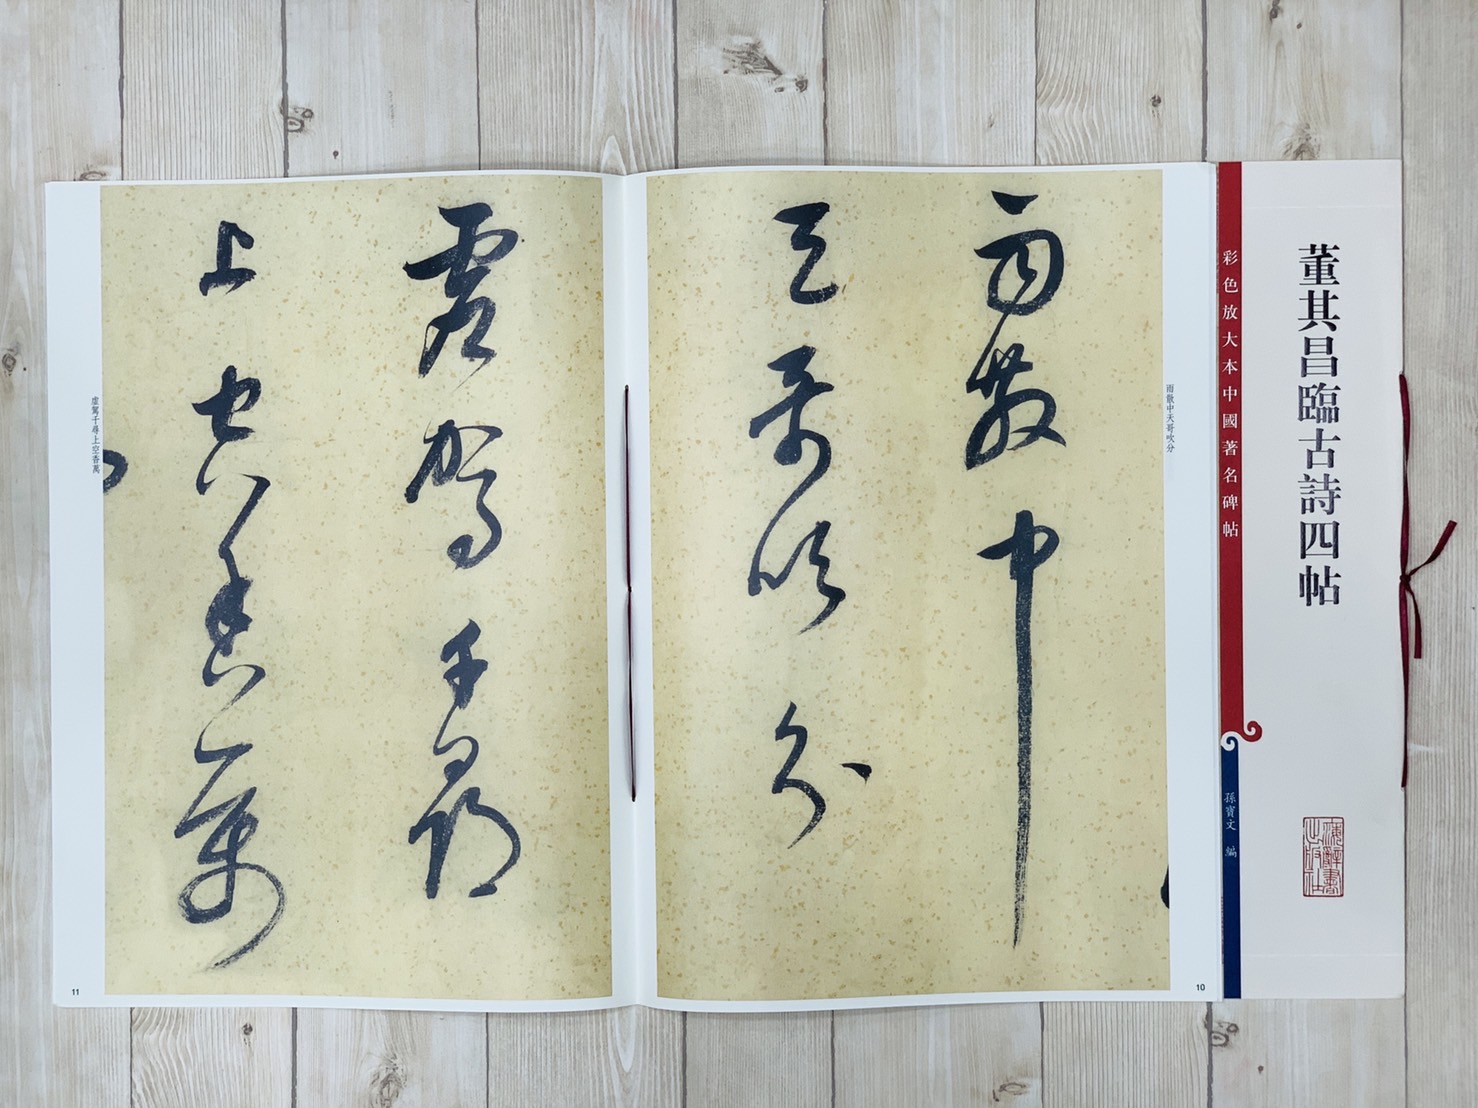 董其昌臨古詩四帖
彩色放大本中國著名碑帖
孫寶文 編
海辭書出版社
雨散中天哥吹分
雨散中
天哥吹分
10
虛駕千尋
上空香萬
虛駕千尋上空香萬
11